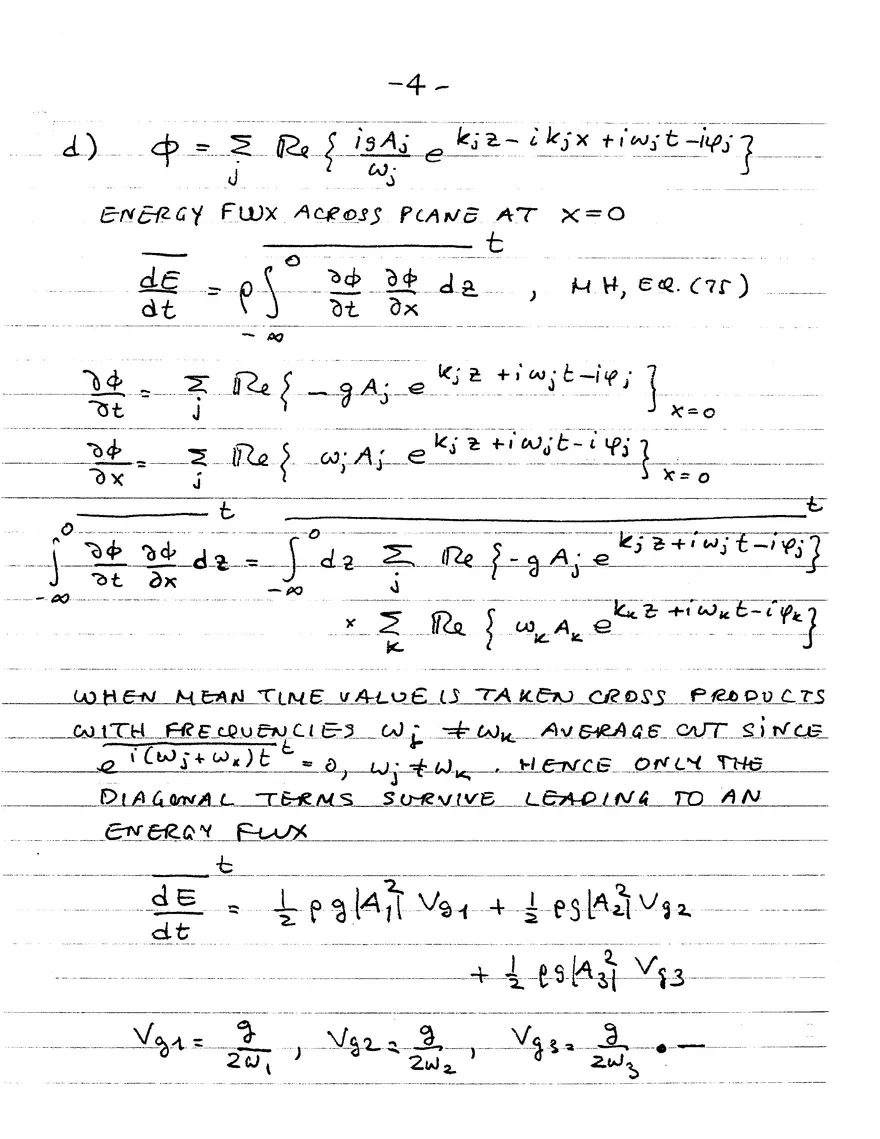 -4-
d) ϕ = Σ_j Re { igA_j/ω_j e^{k_j z - i k_j x + iω_j t - iφ_j} }
ENERGY FLUX ACROSS PLANE AT X=0
\overline{dE/dt} = \overline{ρ ∫_{-∞}^{0} ∂ϕ/∂t ∂ϕ/∂x dz}^t , MH, EQ. (75)
∂ϕ/∂t = Σ_j Re { -gA_j e^{k_j z + iω_j t - iφ_j} }_{x=0}
∂ϕ/∂x = Σ_j Re { ω_j A_j e^{k_j z + iω_j t - iφ_j} }_{x=0}
\overline{∫_{-∞}^{0} ∂ϕ/∂t ∂ϕ/∂x dz}^t = \overline{∫_{-∞}^{0} dz Σ_j Re { -gA_j e^{k_j z + iω_j t - iφ_j} }}^t
× Σ_k Re { ω_k A_k e^{k_k z + iω_k t - iφ_k} }
WHEN MEAN TIME VALUE IS TAKEN CROSS PRODUCTS
WITH FREQUENCIES ω_j ≠ ω_k AVERAGE OUT SINCE
\overline{e^{i(ω_j+ω_k)t}}^t = 0, ω_j ≠ ω_k . HENCE ONLY THE
DIAGONAL TERMS SURVIVE LEADING TO AN
ENERGY FLUX
\overline{dE/dt}^t = 1/2 ρg|A_1|^2 V_{g1} + 1/2 ρg|A_2|^2 V_{g2}
+ 1/2 ρg|A_3|^2 V_{g3}
V_{g1} = g/2ω_1 , V_{g2} = g/2ω_2 , V_{g3} = g/2ω_3 . —